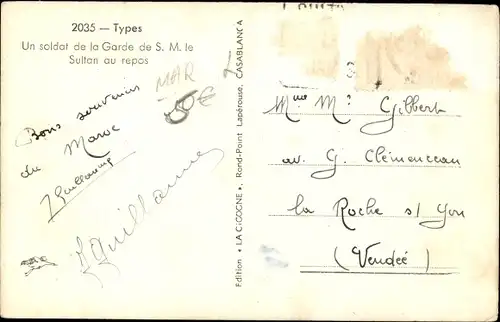 2035 — Types
Un soldat de la Garde de S. M. le
Sultan au repos
MAR
50€
Bons souvenirs
du Maroc
JGuillaume
JGuillaume
Edition • LA CIGOGNE •, Rond-Point Lapérouse, CASABLANCA
Mme M. Gilbert
av. G. Clémenceau
la Roche s/ Yon
(Vendée)